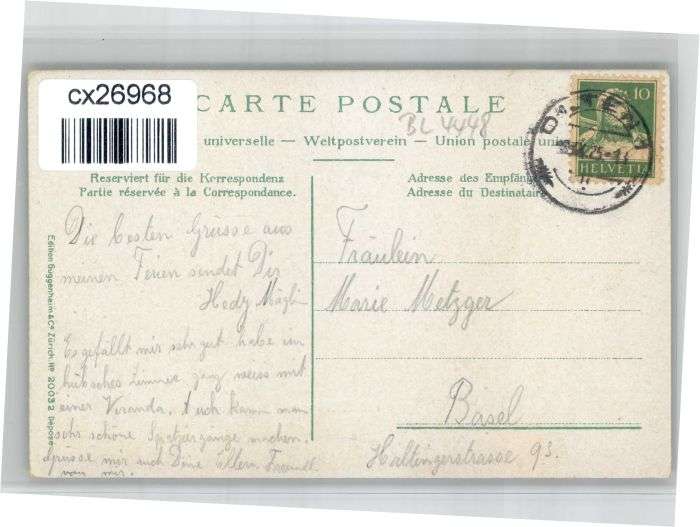 cx26968
CARTE POSTALE
BL 4448
universelle — Weltpostverein — Union postale uni
Reserviert für die Korrespondenz
Partie réservée à la Correspondance.
Adresse des Empfäng
Adresse du Destinataire
10
HELVETIA
Die besten Grüsse aus
meinen Ferien sendet Dir
Hedy
Es gefällt mir sehr gut habe ein
hübsches Zimmer ganz weiss mit
einer Veranda. Auch kann man
sehr schöne Spaziergänge machen.
Grüsse mir auch Deine Eltern
von mir.
Fräulein
Marie Metzger
Basel
Haltingerstrasse 93.
Edition Guggenheim & Co Zürich No 20032 Déposé